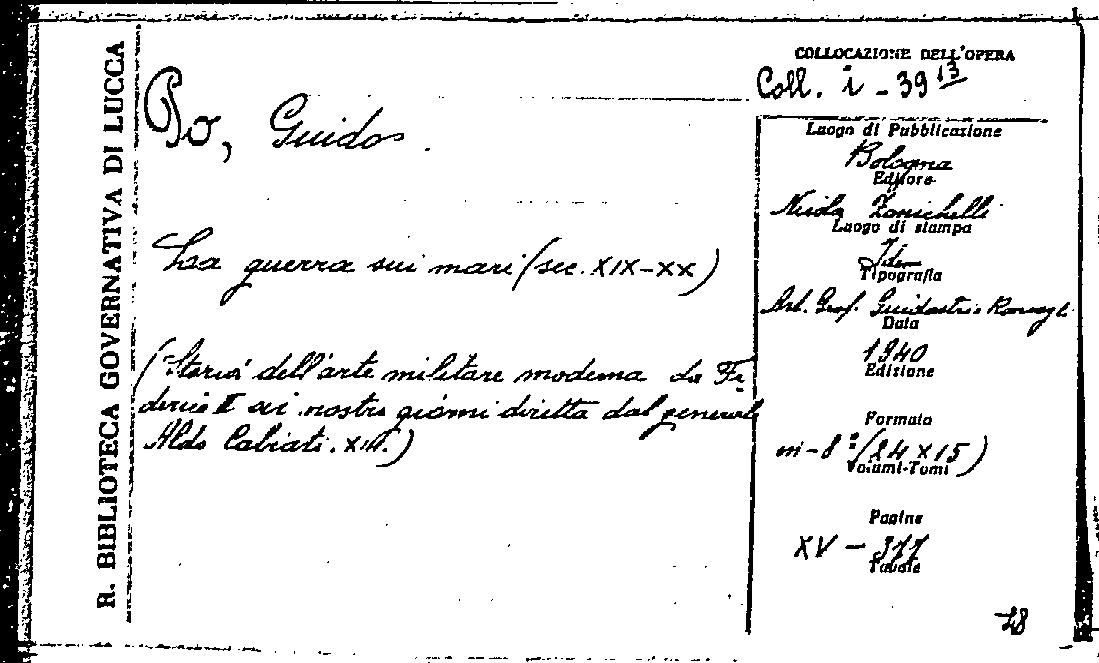 R. BIBLIOTECA GOVERNATIVA DI LUCCA
Po, Guido.
La guerra sui mari (sec. XIX-XX)
(Storia dell'arte militare moderna da Fe
derico II ai nostri giorni diretta dal generale
Aldo Cabiati. XIII.)
COLLOCAZIONE DELL'OPERA
Coll. i - 39 13
Luogo di Pubblicazione
Bologna
Editore
Nicola Zanichelli
Luogo di stampa
Idem
Tipografia
Arb. Graf.
Data
1940
Edizione
Formato
in-8° (24 x 15)
Volumi-Tomi
Pagine
XV - 377
Tavole